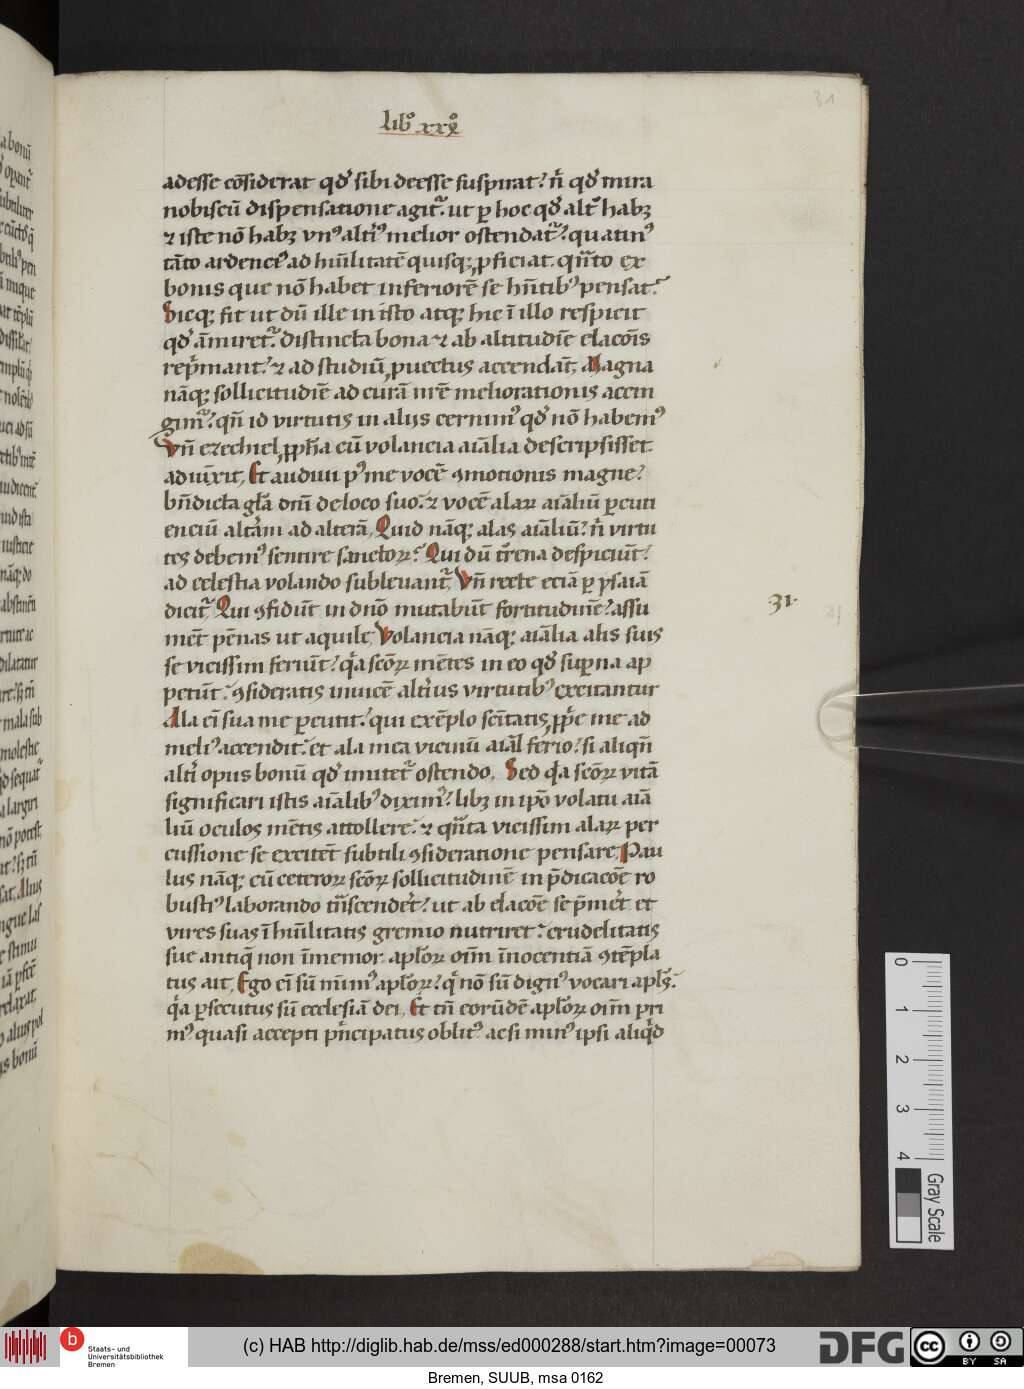 libº xxxº
31
adesse cōsiderat qđ sibi deesse suspirat? n̄ qđ mira
nobiscū dispensatione agit᷑. ut ꝑ hoc qđ alt᷑ habꝫ
⁊ iste nō habꝫ vnꝰ alti᷑ꝰ melior ostendat᷑? quatinꝰ
tāto ardenciꝰ ad hūilitatē quisqꝫ ꝓficiat. qn̄to ex
bonis que nō habet inferiorē se hn̄tibꝰ pensat?
Sicqꝫ fit ut dū ille in isto atqꝫ hic ī illo respicit
qđ āmiret᷑. distincta bona ⁊ ab altitudīe elacōis
rep̄mant? ⁊ ad studiū ꝓuectus accendāt, Magna
nāqꝫ sollicitudīe ad curā nr̄e meliorationis accin
gim᷑? qn̄ id virtutis in alijs cernimꝰ qđ nō habemꝰ
Vn̄ ezechiel ꝓph̄a cū volancia aīalia descripsisset.
adiūxit, Et audiui pꝰ me vocē ꝯmotionis magne?
bn̄dicta gl̄a dnī de loco suo. ⁊ vocē alaꝝ aīaliū ꝑcuti
enciū altām ad alterā, Quid nāqꝫ alas aīaliū? n̄ virtu
tes debemꝰ sentire sanctoꝝ? Qui dū tr̄ena despiciūt?
ad celestia volando subleuant᷑, Vn̄ recte eciā ꝑ ysaiā
dicit᷑, Qui ꝯfidūt in dnō mutabūt fortitudinē? assu
mēt pēnas ut aquile, Volancia nāqꝫ aīalia alis suis
31
se vicissim feriūt? qa scōꝝ mētes in eo qđ suꝑna ap
petūt. ꝯsideratis inuicē alti᷑us virtutibꝰ excitantur
Ala ei̅ sua me ꝑcutit? qui exēplo scītatis ꝓpe me ad
meliꝰ accendit. et ala mea vicinū aīal ferio? si aliqn̄
alti᷑ opus bonū qđ imitet᷑ ostendo, Sed qa scōꝝ vitā
significari istis aīalibꝰ diximꝰ? libꝫ in ipō volatu aīa
liū oculos mētis attollere. ⁊ qn̄ta vicissim alaꝝ per
cussione se excitēt subtili ꝯsideratione pensare, Pau
lus nāqꝫ cū ceteroꝝ scōꝝ sollicitudinē in p̄dicacōe ro
bustiꝰ laborando tn̄scenderet? ut ab elacōe se p̄meret. et
vires suas ī hūilitatis gremio nutriret. crudelitatis
sue antiq̄ non īmemor. apl̄oꝝ oīm īnocentiā ꝯtēpla
tus ait, Ego ei̅ sū mīmꝰ apl̄oꝝ? q̄ nō sū dignꝰ vocari apl̄s.
qa ꝑsecutus sū ecclesiā dei, Et tn̄ eorūdē apl̄oꝝ oīm pri
mꝰ quasi accepti pn̄cipatus oblitꝰ acsi minꝰ ipsi aliqd
0 1 2 3 4
Gray Scale
b Staats- und
Universitätsbibliothek
Bremen
(c) HAB http://diglib.hab.de/mss/ed000288/start.htm?image=00073
DFG
cc BY SA
Bremen, SUUB, msa 0162